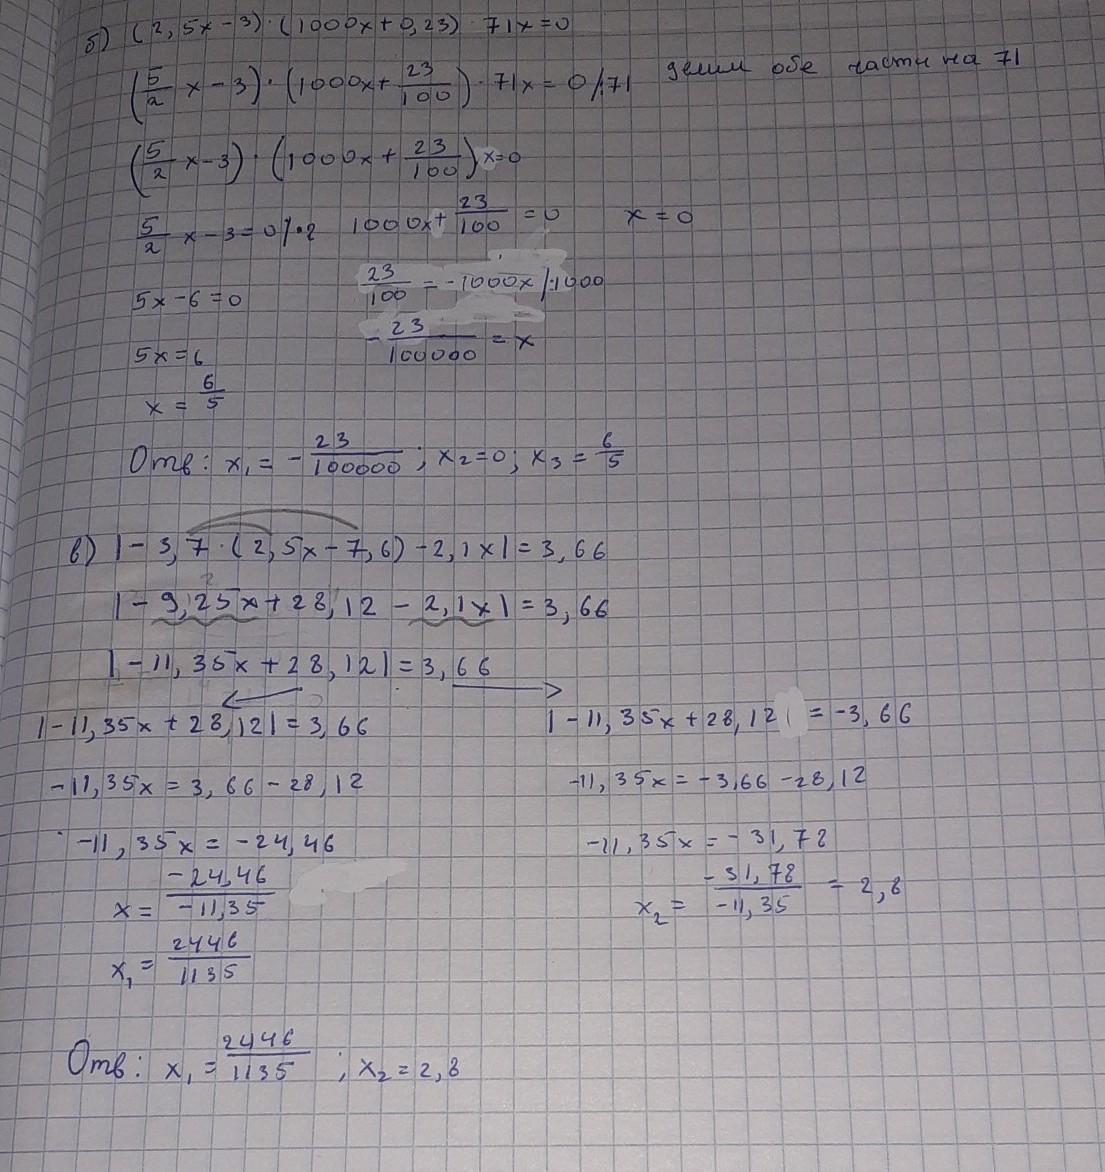 б) (2,5x-3)·(1000x+0,23)·71x=0
(5/2 x-3)·(1000x+23/100)·71x=0 /:71 делим обе части на 71
(5/2 x-3)·(1000x+23/100)x=0
5/2 x-3=0/·2 1000x+23/100=0 x=0
5x-6=0 23/100=-1000x/:1000
5x=6 -23/100000=x
x=6/5
Отв: x₁=-23/100000; x₂=0; x₃=6/5
в) |-3,7·(2,5x-7,6)-2,1x|=3,66
|-9,25x+28,12-2,1x|=3,66
|-11,35x+28,12|=3,66
|-11,35x+28,12|=3,66 |-11,35x+28,12|=-3,66
-11,35x=3,66-28,12 -11,35x=-3,66-28,12
-11,35x=-24,46 -11,35x=-31,78
x=-24,46/-11,35 x₂=-31,78/-11,35=2,8
x₁=2446/1135
Отв: x₁=2446/1135; x₂=2,8